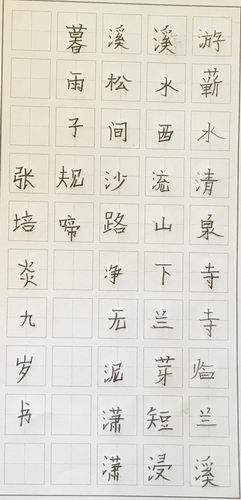 游蕲水清泉寺寺临兰溪
溪水西流山下兰芽短浸
溪松间沙路净无泥潇潇
暮雨子规啼
张培炎九岁书